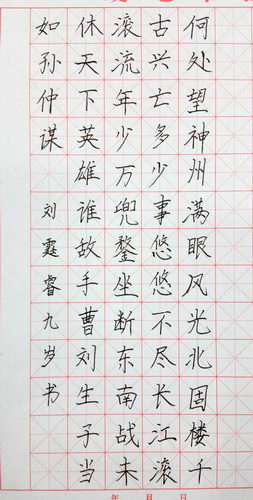 何处望神州满眼风光北固楼千
古兴亡多少事悠悠不尽长江滚
滚流年少万兜鍪坐断东南战未
休天下英雄谁敌手曹刘生子当
如孙仲谋 刘霆睿九岁书
年 月 日